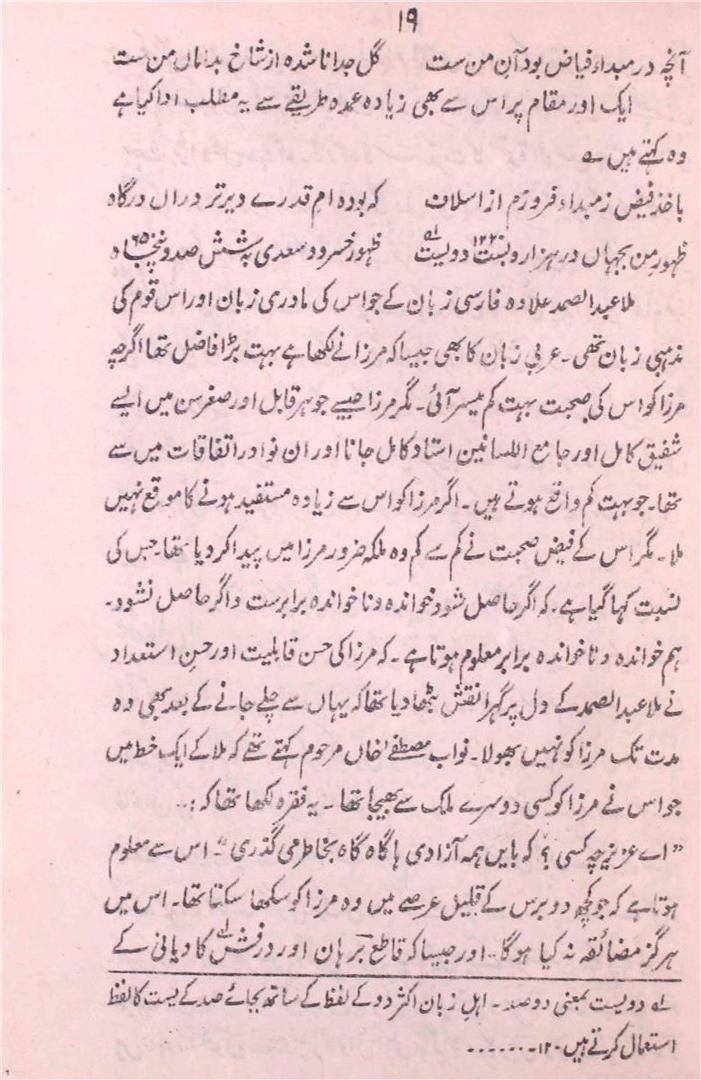 ۱۹
آنچہ در مبداء فیاض بود آنِ من ست گل جدا ناشدہ از شاخ بداماں من ست
ایک اور مقام پر اس سے بھی زیادہ عمدہ طریقے سے یہ مطلب ادا کیا ہے
وہ کہتے ہیں ؎
باخذ فیض ز مبداء فزوزم از اسلاف کہ بودہ ام قدرے دیر تر در اں درگاہ
ظہورِ من بجہاں در ہزار و بست ۱۲۲۰ و دویست ؎۱ ظہور خسرو و سعدی بہ شش صد و پنجاہ ۶۵۰
ملا عبدالصمد علاوہ فارسی زبان کے جو اس کی مادری زبان اور اس قوم کی
مذہبی زبان تھی۔ عربی زبان کا بھی جیسا کہ مرزا نے لکھا ہے بہت بڑا فاضل تھا اگرچہ
مرزا کو اس کی صحبت بہت کم میسر آئی۔ مگر مرزا جیسے جوہر قابل اور صغر سن میں ایسے
شفیق کامل اور جامع اللسانین استاد کامل جانا اور ان نوادر اتفاقات میں سے
تھا۔ جو بہت کم واقع ہوتے ہیں۔ اگر مرزا کو اس سے زیادہ مستفید ہونے کا موقع نہیں
ملا۔ مگر اس کے فیض صحبت نے کم سے کم وہ ملکہ ضرور مرزا میں پیدا کر دیا تھا۔ جس کی
نسبت کہا گیا ہے۔ کہ اگر حاصل شود خواندہ و نا خواندہ برابر ست و اگر حاصل نشود۔
ہم خواندہ و نا خواندہ برابر معلوم ہوتا ہے۔ کہ مرزا کی حسن قابلیت اور حسن استعداد
نے ملا عبدالصمد کے دل پر گہرا نقش بٹھا دیا تھا کہ یہاں سے چلے جانے کے بعد بھی وہ
مدت تک مرزا کو نہیں بھولا۔ نواب مصطفےٰ خاں مرحوم کہتے تھے کہ ملا کے ایک خط میں
جو اس نے مرزا کو کسی دوسرے ملک سے بھیجا تھا۔ یہ فقرہ لکھا تھا کہ :۔
”اے عزیز چہ کسی ؟ کہ بایں ہمہ آزادی ہا گاہ گاہ بخاطر می گذری“۔ اس سے معلوم
ہوتا ہے کہ جو کچھ دو برس کے قلیل عرصے میں وہ مرزا کو سکھا سکتا تھا۔ اس میں
ہر گز مضائقہ نہ کیا ہوگا۔ اور جیسا کہ قاطع برہان اور درفش کاویانی کے
؎۱ دویست بمعنی دو صد۔ اہل زبان اکثر دو کے لفظ کے ساتھ بجائے صد کے یست کا لفظ
استعمال کرتے ہیں۔ ۱۲۔ . . . . . .